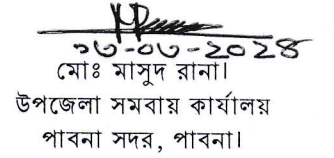 ১৩-০৩-২০২৪
মোঃ মাসুদ রানা।
উপজেলা সমবায় কার্যালয়
পাবনা সদর, পাবনা।